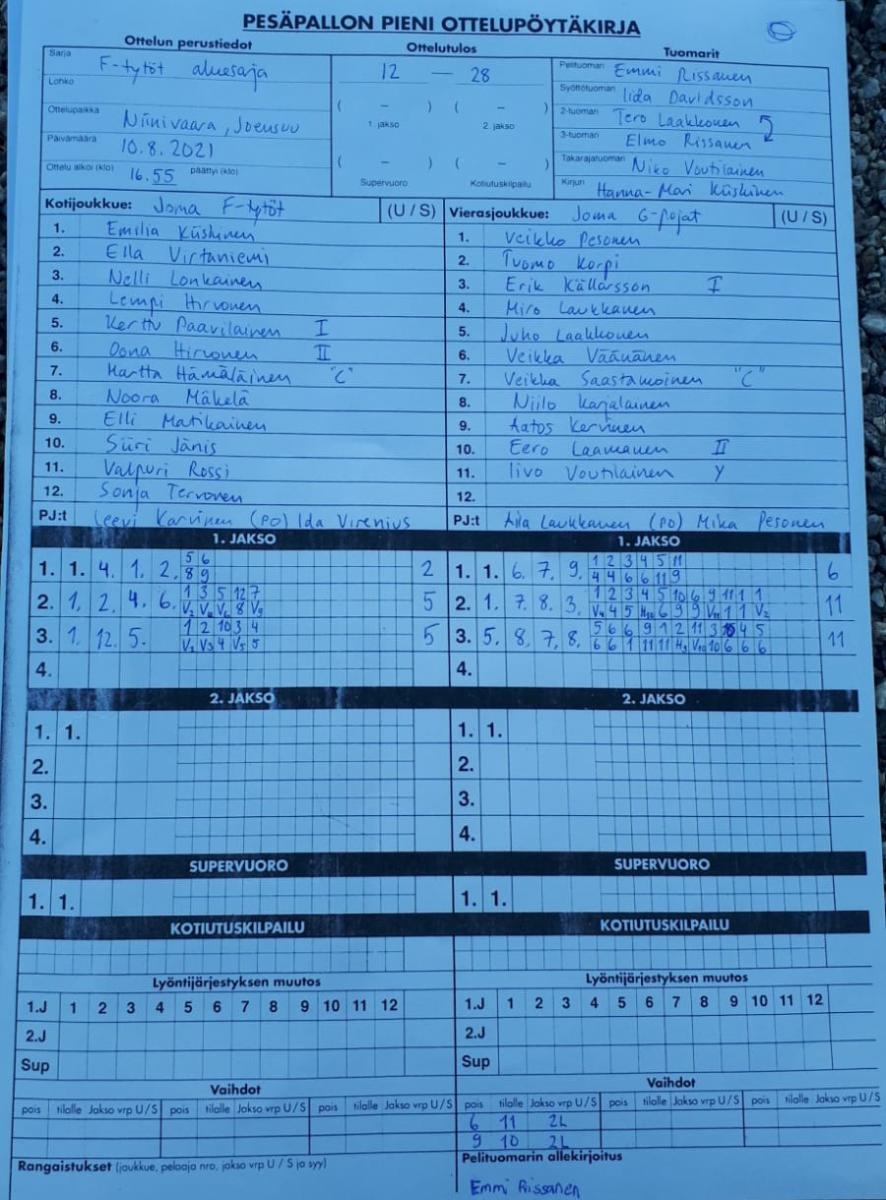 PESÄPALLON PIENI OTTELUPÖYTÄKIRJA
Ottelun perustiedot
Sarja F-tytöt aluesarja
Lohko
Ottelupaikka Niinivaara, Joensuu
Päivämäärä 10.8.2021
Ottelu alkoi (klo) 16.55 päättyi (klo)
Ottelutulos
12 – 28
( – ) ( – )
1. jakso 2. jakso
( – ) ( – )
Supervuoro Kotiutuskilpailu
Tuomarit
Pelituomari Emmi Rissanen
Syöttötuomari Iida Davidsson
2-tuomari Tero Laakkonen
3-tuomari Elmo Rissanen
Takarajatuomari Niko Voutilainen
Kirjuri Hanna-Mari Kiiskinen
Kotijoukkue: Joma F-tytöt (U / S)
1. Emilia Kiiskinen
2. Ella Virtaniemi
3. Nelli Lonkainen
4. Lempi Hirvonen
5. Kerttu Paavilainen I
6. Oona Hirvonen II
7. Martta Hämäläinen "C"
8. Noora Mäkelä
9. Elli Matikainen
10. Siiri Jänis
11. Valpuri Rossi
12. Sonja Tervonen
PJ:t Leevi Karvinen (PO) Ida Virenius
Vierasjoukkue: Joma G-pojat (U / S)
1. Veikko Pesonen
2. Tuomo Korpi
3. Erik Källarsson I
4. Miro Laukkanen
5. Juho Laakkonen
6. Veikka Väänänen
7. Veikka Saastamoinen "C"
8. Niilo Karjalainen
9. Aatos Kervinen
10. Eero Laamanen II
11. Iivo Voutilainen Y
12.
PJ:t Aila Laukkanen (PO) Mika Pesonen
1. JAKSO
5 6
1. 1. 4. 1. 2. 8 9 2
1 3 5 12 7
2. 1. 2. 4. 6. 5
1 2 10 3 4
3. 1. 12. 5. 5
4.
1. JAKSO
1 2 3 4 5 11
1. 1. 6. 7. 9. 4 4 6 6 11 9 6
1 2 3 4 5 10 6 9 11 1 1
2. 1. 7. 8. 3. 11
5 6 6 9 1 2 11 3 4 5
3. 5. 8. 7. 8. 11
4.
2. JAKSO
1. 1.
2.
3.
4.
2. JAKSO
1. 1.
2.
3.
4.
SUPERVUORO
1. 1.
SUPERVUORO
1. 1.
KOTIUTUSKILPAILU
KOTIUTUSKILPAILU
Lyöntijärjestyksen muutos
1.J 1 2 3 4 5 6 7 8 9 10 11 12
2.J
Sup
Lyöntijärjestyksen muutos
1.J 1 2 3 4 5 6 7 8 9 10 11 12
2.J
Sup
Vaihdot
pois tilalle Jakso vrp U / S pois tilalle Jakso vrp U / S pois tilalle Jakso vrp U / S
Vaihdot
pois tilalle Jakso vrp U / S pois tilalle Jakso vrp U / S pois tilalle Jakso vrp U / S
6 11 2L
9 10 2L
Rangaistukset (joukkue, pelaaja nro, jakso vrp U / S ja syy)
Pelituomarin allekirjoitus
Emmi Rissanen